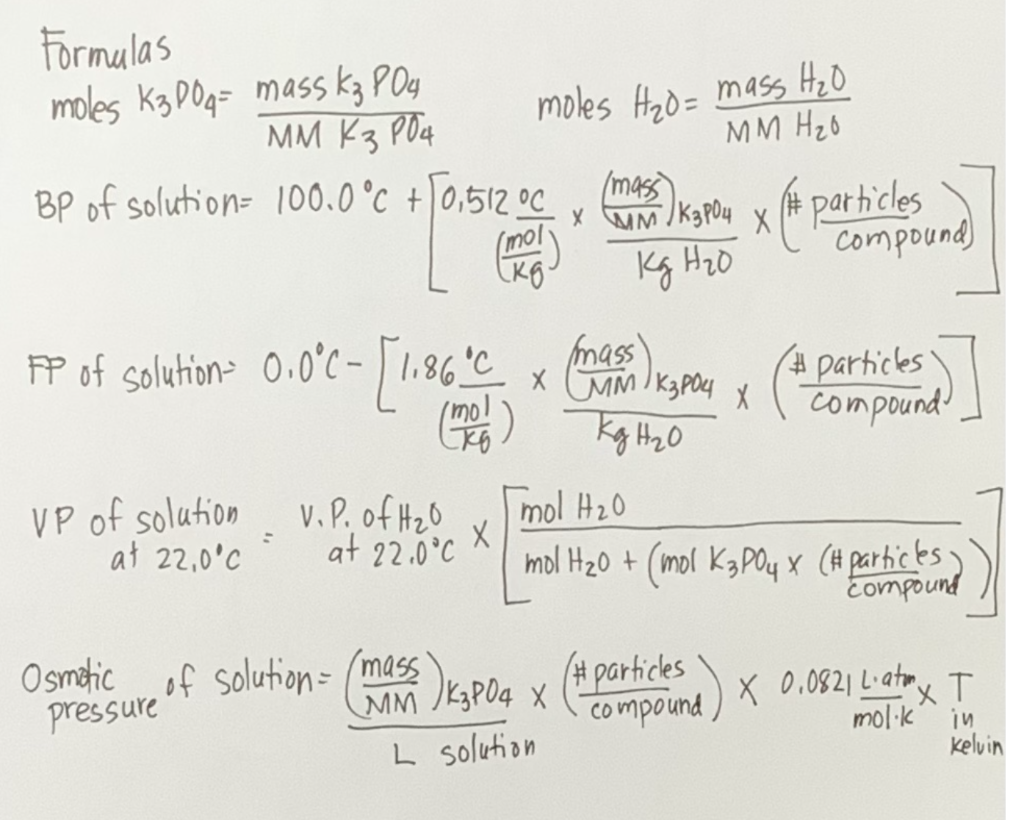 Formulas
moles K3PO4 = mass K3 PO4 / MM K3 PO4    moles H2O = mass H2O / MM H2O
BP of solution = 100.0 °C + [0.512 °C/(mol/kg) x (mass/MM)K3PO4 / Kg H2O x (# particles / compound)]
FP of solution = 0.0°C - [1.86 °C/(mol/kg) x (mass/MM)K3PO4 / Kg H2O x (# particles / compound)]
VP of solution at 22.0°C = V.P. of H2O at 22.0°C x [mol H2O / mol H2O + (mol K3PO4 x (# particles / compound))]
Osmotic pressure of solution = (mass/MM)K3PO4 / L solution x (# particles / compound) x 0.0821 L·atm/mol·k x T in kelvin